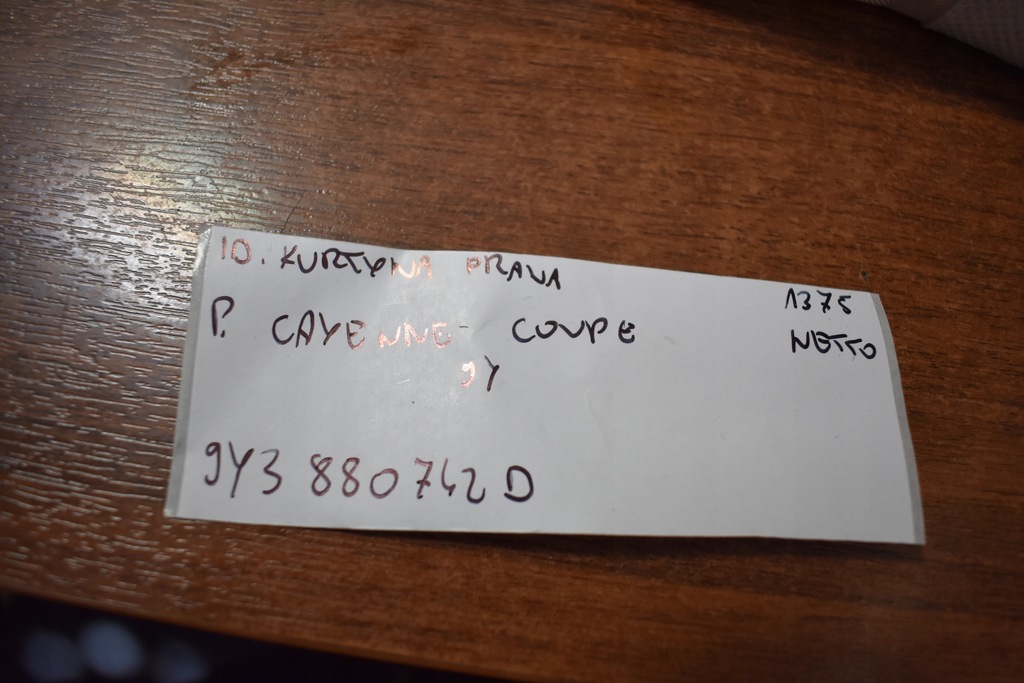 10. KURTYNA PRAWA
1375
P. CAYENNE- COUPE
NETTO
9Y
9Y3 880 742 D